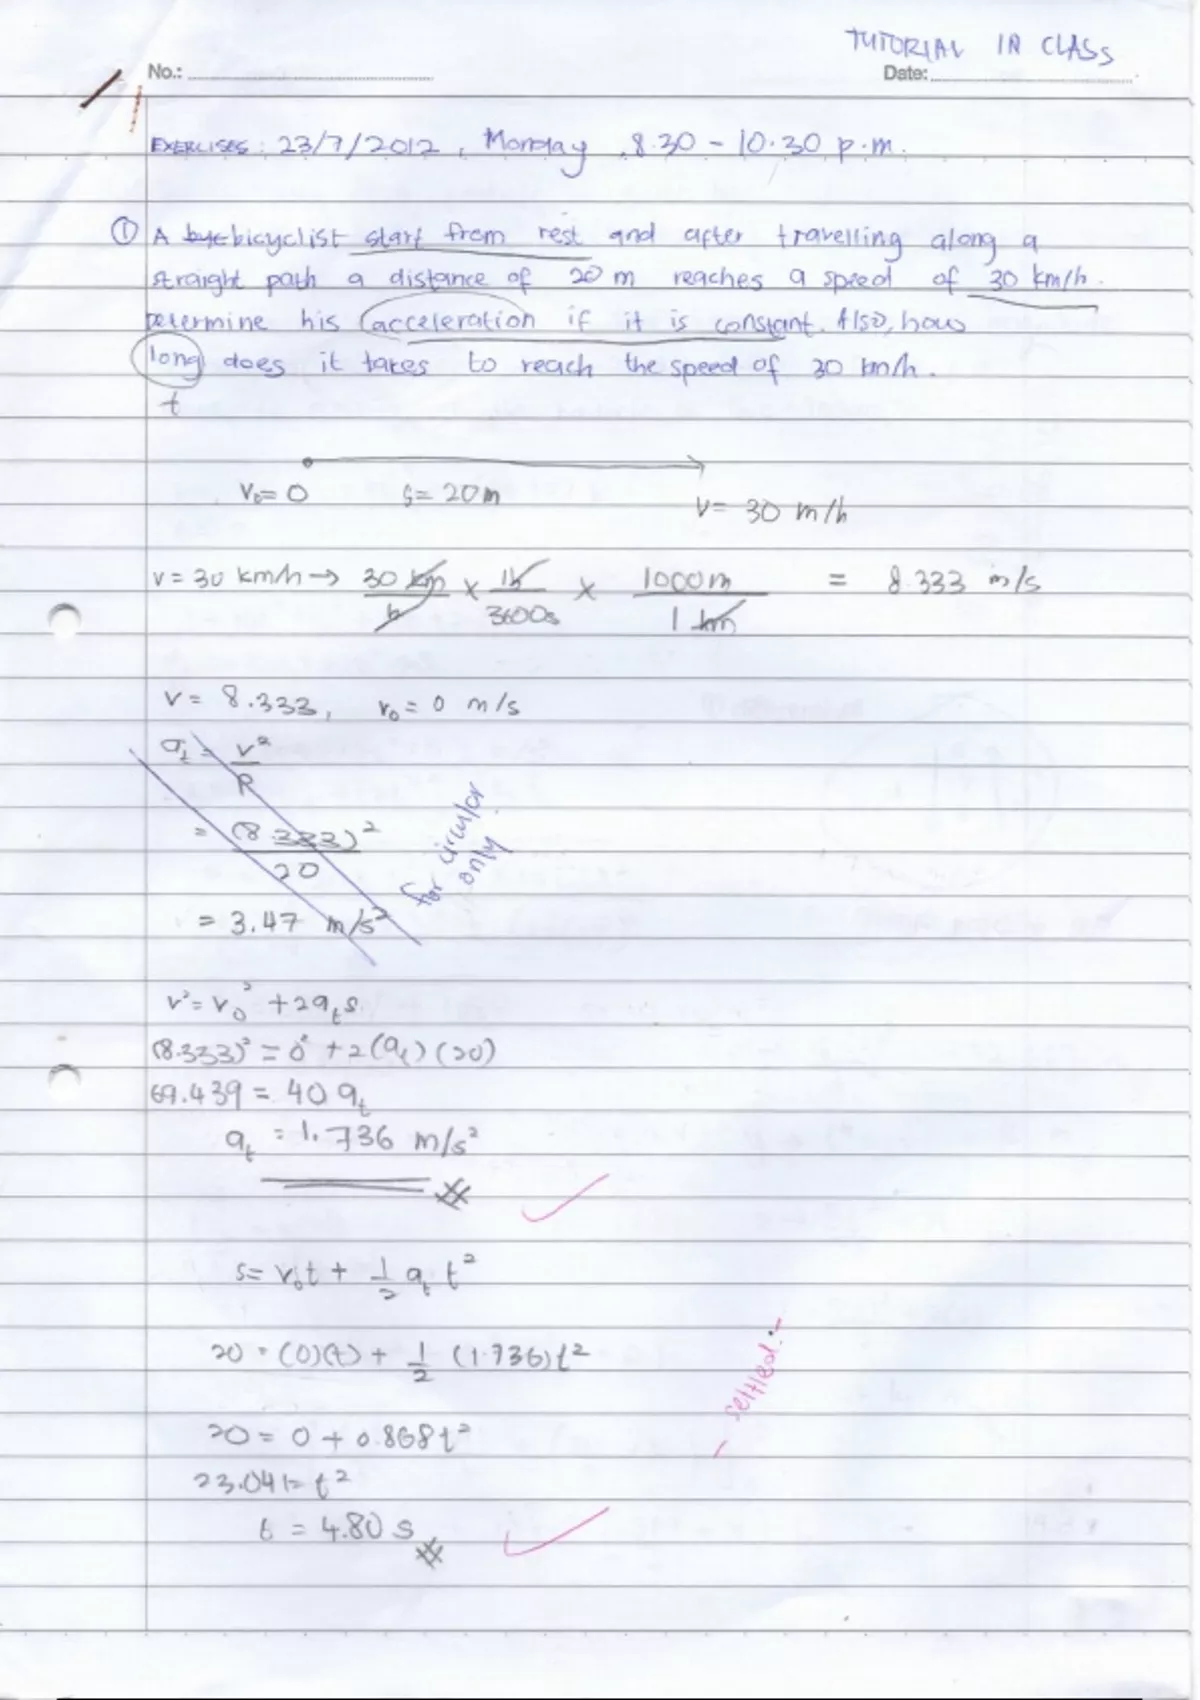 TUTORIAL IN CLASS
No.: Date:
EXERCISES : 23/7/2012 , Monday , 8.30 - 10.30 p.m.
① A bye bicyclist start from rest and after travelling along a
straight path a distance of 20 m reaches a speed of 30 km/h.
Determine his acceleration if it is constant. Also, how
long does it takes to reach the speed of 30 km/h.
t
V₀= 0 S= 20m V= 30 m/h
v = 30 km/h → 30 km/h × 1h/3600s × 1000m/1 km = 8.333 m/s
v = 8.333, v₀ = 0 m/s
a_t = v²/R
= (8.333)²/20
= 3.47 m/s²
for circular only
v² = v₀² + 2a_t s
(8.333)² = 0² + 2(a_t)(20)
69.439 = 40 a_t
a_t = 1.736 m/s²
s= v₀t + 1/2 a_t t²
20 = (0)(t) + 1/2 (1.736)t²
- settled. -
20 = 0 + 0.868t²
23.041 = t²
t = 4.80 s